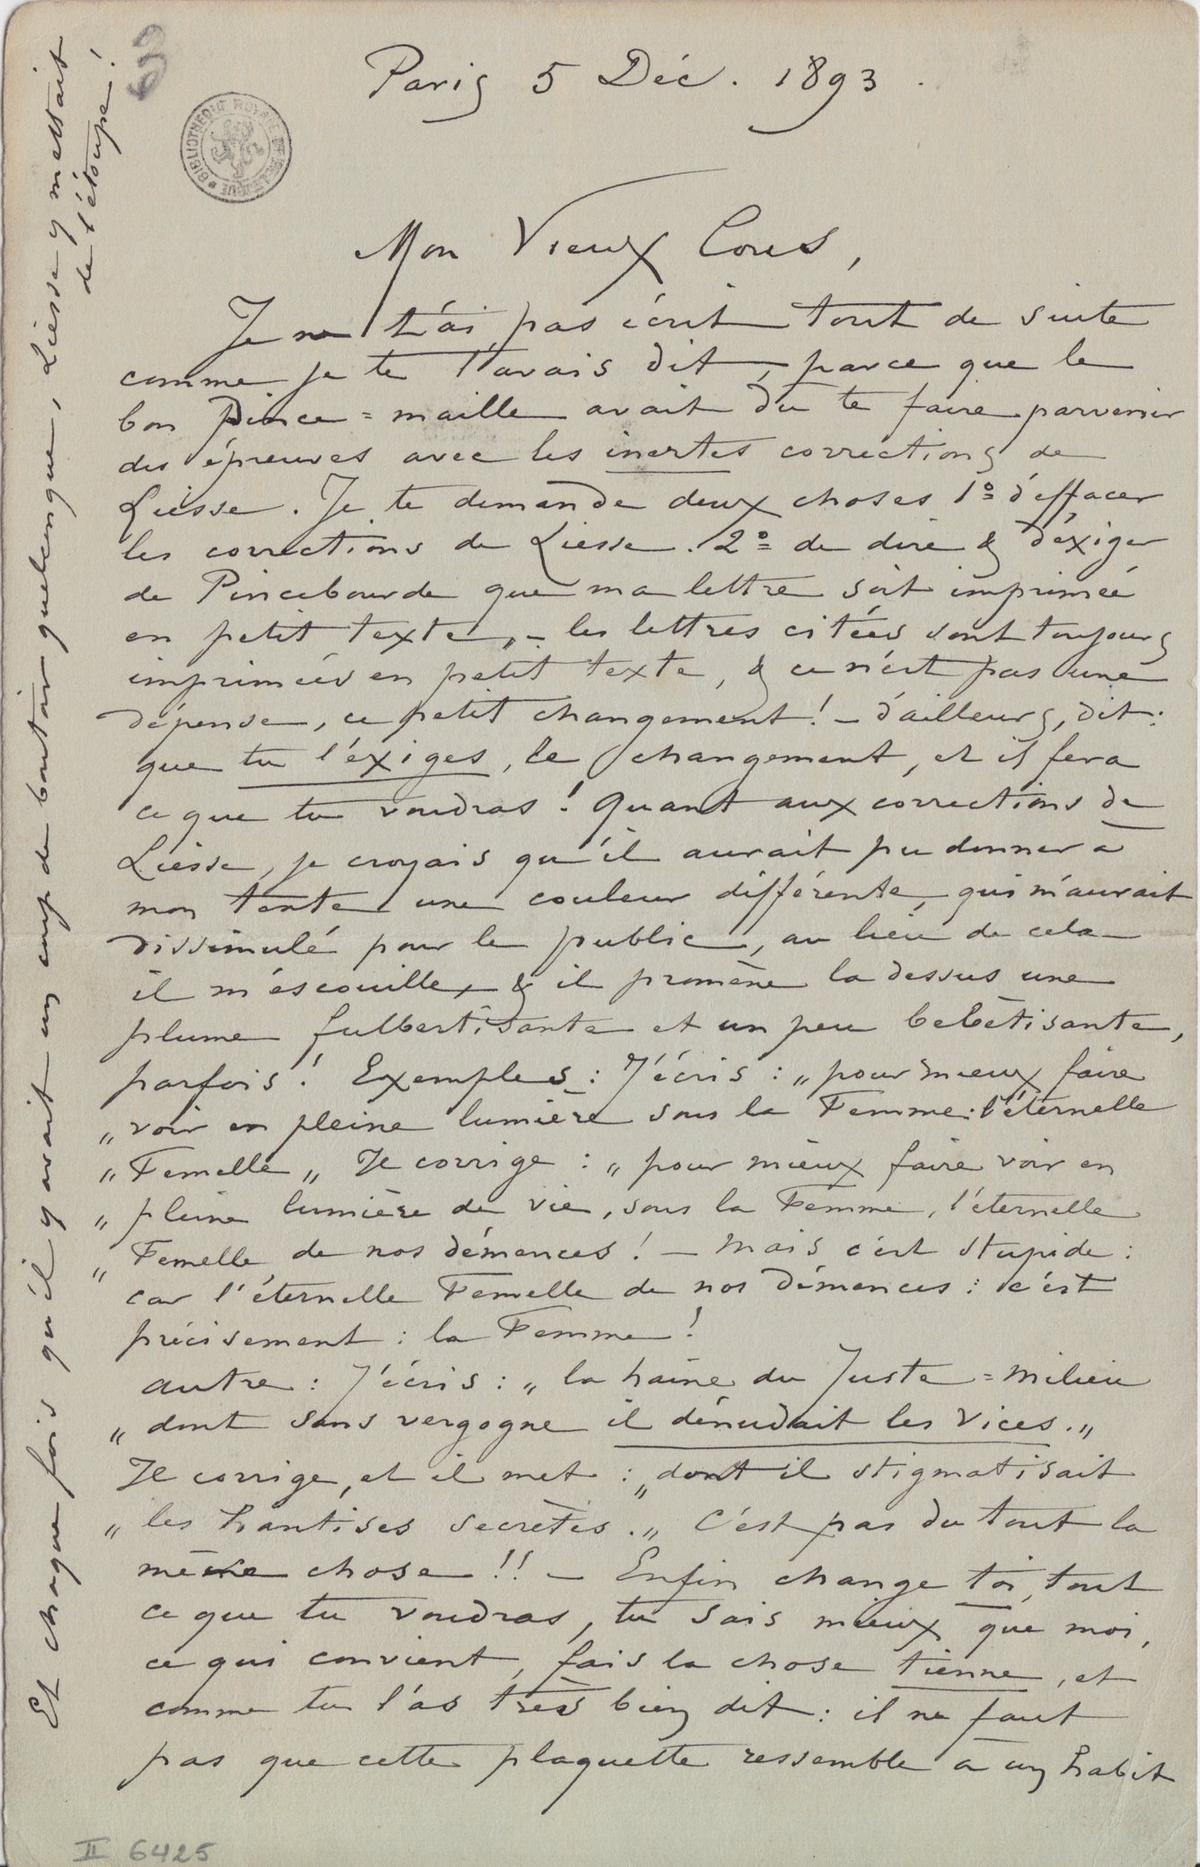 Paris 5 Déc. 1893.
BIBLIOTHÈQUE ROYALE DE BELGIQUE
Mon Vieux Cous,
Je ne t'ai pas écrit tout de suite
comme je te l'avais dit, parce que le
bon Pince=maille avait dû te faire parvenir
des épreuves avec les inertes corrections de
Liesse. Je te demande deux choses 1º d'effacer
les corrections de Liesse. 2º de dire & d'éxiger
de Pincebourde que ma lettre soit imprimée
en petit texte, – les lettres citées sont toujours
imprimées en petit texte, & ce n'est pas une
dépense, ce petit changement! – d'ailleurs, dit:
que tu l'éxiges, le changement, et il fera
ce que tu voudras! Quant aux corrections de
Liesse, je croyais qu'il aurait pu donner à
mon texte une couleur différente, qui m'aurait
dissimulé pour le public, au lieu de cela
il m'escouille, & il promène la dessus une
plume fulbertisante et un peu bebêtisante,
parfois! Exemples: J'écris: „pour mieux faire
„voir en pleine lumière sous la Femme: l'éternelle
„Femelle„ Il corrige: „pour mieux faire voir en
„pleine lumière de vie, sous la Femme, l'éternelle
„Femelle de nos démences! – Mais c'est stupide:
car l'éternelle Femelle de nos démences: c'est
précisement: la Femme!
autre: J'écris: „la haine du Juste=milieu
„dont sans vergogne il dénudait les vices.„
Il corrige, et il met: „dont il stigmatisait
„les hantises secrètes.„ C'est pas du tout la
même chose!! – Enfin change toi, tout
ce que tu voudras, tu sais mieux que moi,
ce qui convient, fais la chose tienne, et
comme tu l'as très bien dit: il ne faut
pas que cette plaquette ressemble à un habit
Et chaque fois qu'il y avait un coup de boutoir quelconque, Liesse y mettait
de l'étoupe!
II 6425